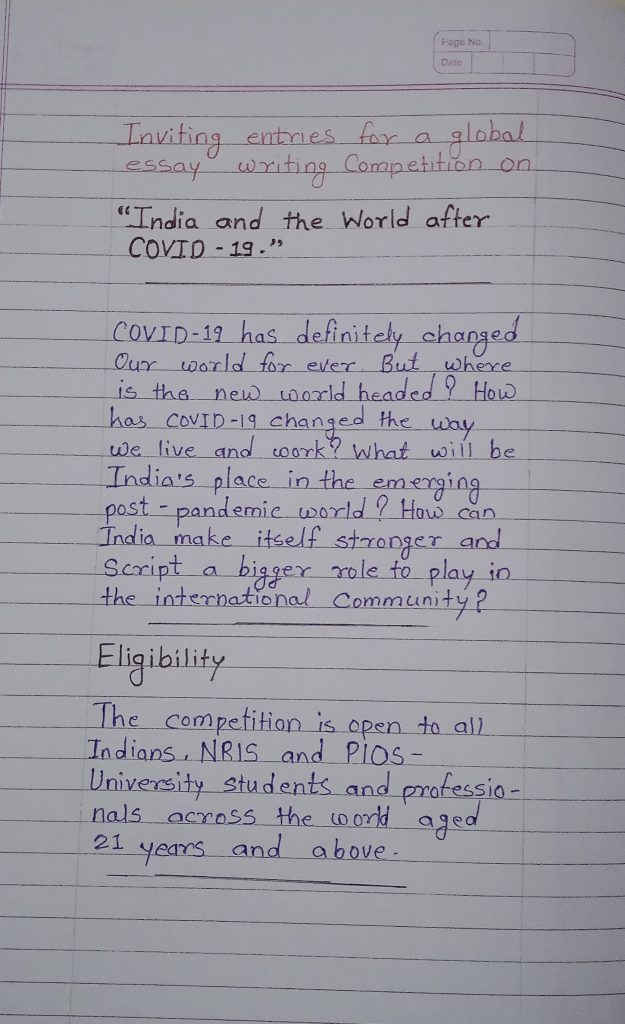 Page No.
Date
Inviting entries for a global
essay writing Competition on
“India and the World after
COVID - 19.”
COVID-19 has definitely changed
Our world for ever. But where
is the new world headed? How
has COVID-19 changed the way
we live and work? What will be
India's place in the emerging
post - pandemic world? How can
India make itself stronger and
Script a bigger role to play in
the international Community?
Eligibility
The competition is open to all
Indians, NRIS and PIOS -
University students and professio-
nals across the world aged
21 years and above.